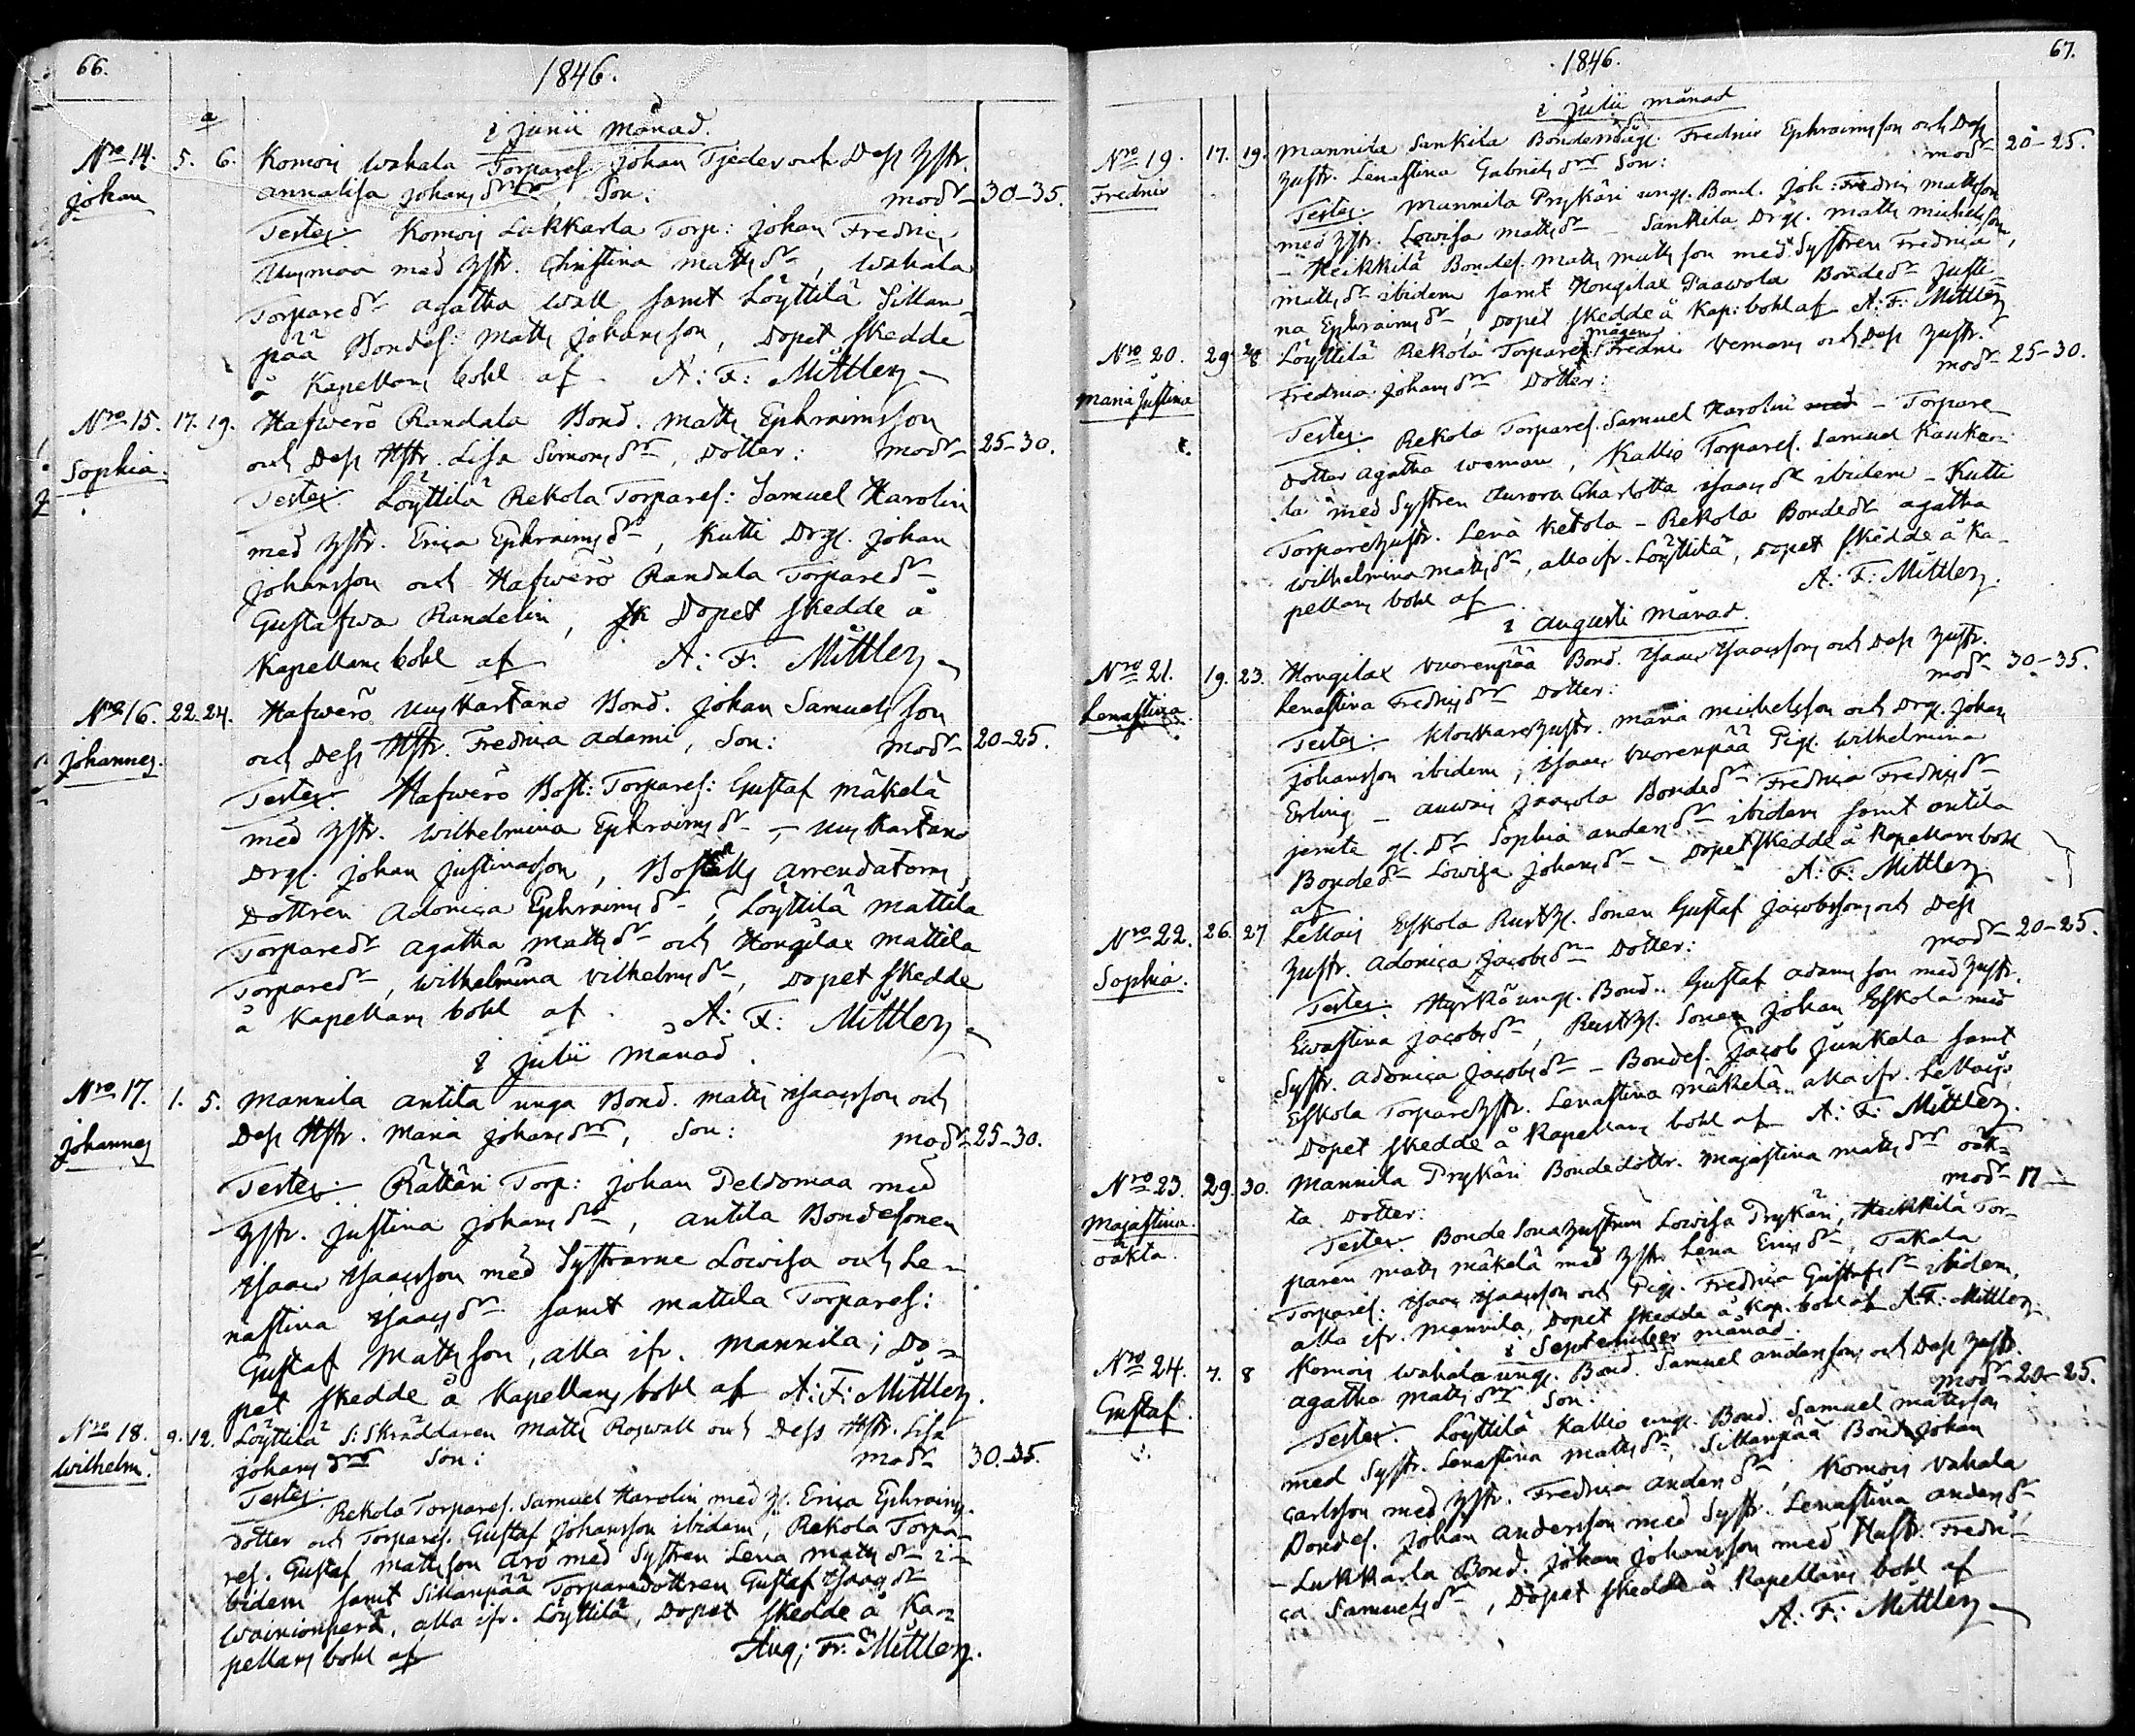 66.
1846.
i Junii månad.
Nro 14. 5. 6. Komois Wahala Torparef. Johan Tjeder och Dess Hstr.
Johan Annalisa Johansdr, Son: modr 30-35.
Testes: Komois Lukkarla Torp: Johan Fredric
Uusmaa med Hstr. Christina Mattsdr, Wahala
Torparedr Agatha Wall samt Löyttilä Sillan-
pää Bondes: Matts Johansson, Dopet skedde
å Kapellans bohl af A: F: Mittler
Nro 15. 17. 19. Hafwerö Randala Bond. Matts Ephraimsson
Sophia. och Dess Hstr. Lisa Simonsdr, Dotter: modr 25-30.
Testes: Löyttilä Rekola Torparef: Samuel Harolin
med Hstr. Erica Ephraimsdr, Kutti Drgs. Johan
Johansson och Hafwerö Randala Torparedr
Gustafwa Randelin, Dopet skedde å
Kapellans bohl af A: F: Mittler
Nro 16. 22. 24. Hafwerö Uusikartano Bond. Johan Samuelsson
Johannes. och Dess Hstr. Fredrica Adami, Son: modr 20-25.
Testes: Hafwerö Bost: Torparef: Gustaf Mäkelä
med Hstr. Wilhelmina Ephraimsdr, Uusikartano
Drgs. Johan Justinasson, Boställs Arrendatorns
Dottren Adonica Ephraimsdr, Löyttilä Mattila
Torparedr Agatha Mattsdr och Hongilax Mattila
Torparedr, Wilhelmina Vilhelmsdr, Dopet skedde
å Kapellans bohl af A: F: Mittler
i Julii månad.
Nro 17. 1. 5. Mannila Antila unga Bond. Matts Isaacsson och
Johannes Dess Hstr. Maria Johansdr, Son: modr 25-30.
Testes: Rättäri Torp: Johan Peldomaa med
Hstr. Justina Johansdr, Antila Bondesonen
Isaac Isaacsson med Systrarne Lowisa och Le-
nastina Isaacsdr samt Mattila Torparef:
Gustaf Mattsson, alla ifr. Mannila; Do-
pet skedde å Kapellans bohl af A: F: Mittler.
Nro 18. 9. 12. Löyttilä S: Skräddaren Matts Roswall och Dess Hstr. Lisa
Wilhelm. Johansdr Son: modr 30-35.
Testes: Rekola Torparef. Samuel Harolin med H. Erica Ephraims-
dotter och Torparef. Gustaf Johansson ibidem, Rekola Torpa-
ref. Gustaf Mattsson Aro med Systren Lena Mattsdr i-
bidem samt Sillanpää Torparedottren Gustaf Isaacsdr
Wainionperä, alla ifr. Löyttilä, Dopet skedde å Ka-
pellans bohl af Aug: Fr: Mittler.
67.
1846.
i Julii månad
Nro 19. 17. 19. Mannila Sankila Bondemåg. Fredric Ephraimsson och Dess
Fredric Hustr. Lenastina Gabrielsdr Son: modr 20-25.
Testes: Mannila Prykäri ungs. Bond. Joh: Fredric Mattsson
med Hstr. Lowisa Mattsdr - Sankila Drgs. Matts Michelsson,
- Heikkilä Bondes. Matts Mattsson med Systren Fredrica
Mattsdr ibidem samt Hongilax Paawola Bondedr Justi-
na Ephraimsdr, Dopet skedde å Kap: bohl af A: F: Mittler
Nro 20. 29. 28 Löyttilä Rekola Torparef mågen Fredric Veman och Dess Hustr.
Maria Justina Fredrica Johansdr Dotter: modr 25-30.
Testes: Rekola Torparef. Samuel Harolin - Torpare-
dotter Agatha Weman, Kallio Torparef. Samuel Kauka-
la med Systren Aurora Charlotta Isaacsdr ibidem - Kutti
Torparehustr. Lena Ketola - Rekola Bondedr Agatha
Wilhelmina Mattsdr, alla ifr. Löyttilä, Dopet skedde å Ka-
pellans bohl af A: F: Mittler.
i Augusti månad.
Nro 21. 19. 23. Hongilax Vuorenpää Bond. Isaac Isaacsson och Dess Hustr.
Lenastina. Lenastina Fredricsdr Dotter: modr 30-35.
Testes: Klockarehustr. Maria Michelsson och Drgs. Johan
Johansson ibidem, Isaac Vuorenpää Pigs. Wilhelmina
Erling - Auwais Jaacola Bondedr Fredrica Fredricsdr
jemte Dr Sophia Andersdr ibidem samt Antila
Bondedr Lowisa Johansdr - Dopet skedde å Kapellans bohl
af A: F: Mittler
Nro 22. 26. 27 Lemais Eskola Rusth. Sonen Gustaf Jacobsson och Dess
Sophia. Hustr. Adonica Jacobsdr Dotter: modr 20-25.
Testes: Hyrkö ungs. Bond. Gustaf Adamsson med Hustr.
Ewastina Jacobsdr, Rusth. Sonen Johan Eskola med
Systr. Adonica Jacobsdr - Bondes. Jacob Junkala samt
Eskola Torparehstr. Lenastina Mäkelä alla ifr. Lemais.
Dopet skedde å Kapellans bohl af A: F: Mittler.
Nro 23. 29. 30. Mannila Prykäri Bondedottr. Majastina Mattsdr oäk-
Majastina. ta Dotter: modr 17
oäkta. Testes: Bonde Sonahustrun Lowisa Prykäri, Heikkilä Tor-
paren Matts Mäkelä med Hstr Lena Ericsdr, Takala
Torparef: Isaac Isaacsson och Pigs. Fredrica Gustafsdr ibidem,
alla ifr. Mannila, Dopet skedde å Kap. bohl af A: F: Mittler
i September månad.
Nro 24. 7. 8 Komois Wahala ungs. Bond. Samuel Andersson och Dess Hustr.
Gustaf. Agatha Mattsdr Son: modr 20-25.
Testes: Löyttilä Kallio ungs. Bond. Samuel Mattsson
med Systr. Lenastina Mattsdr, Sillanpää Bond. Johan
Carlsson med Hstr. Fredrica Andersdr, Komois Vahala
Bondes. Johan Andersson med Systr. Lenastina Andersdr
- Lukkarla Bond. Johan Johansson med Hustr. Fredri-
ca Samuelsdr, Dopet skedde å Kapellans bohl af
A: F: Mittler